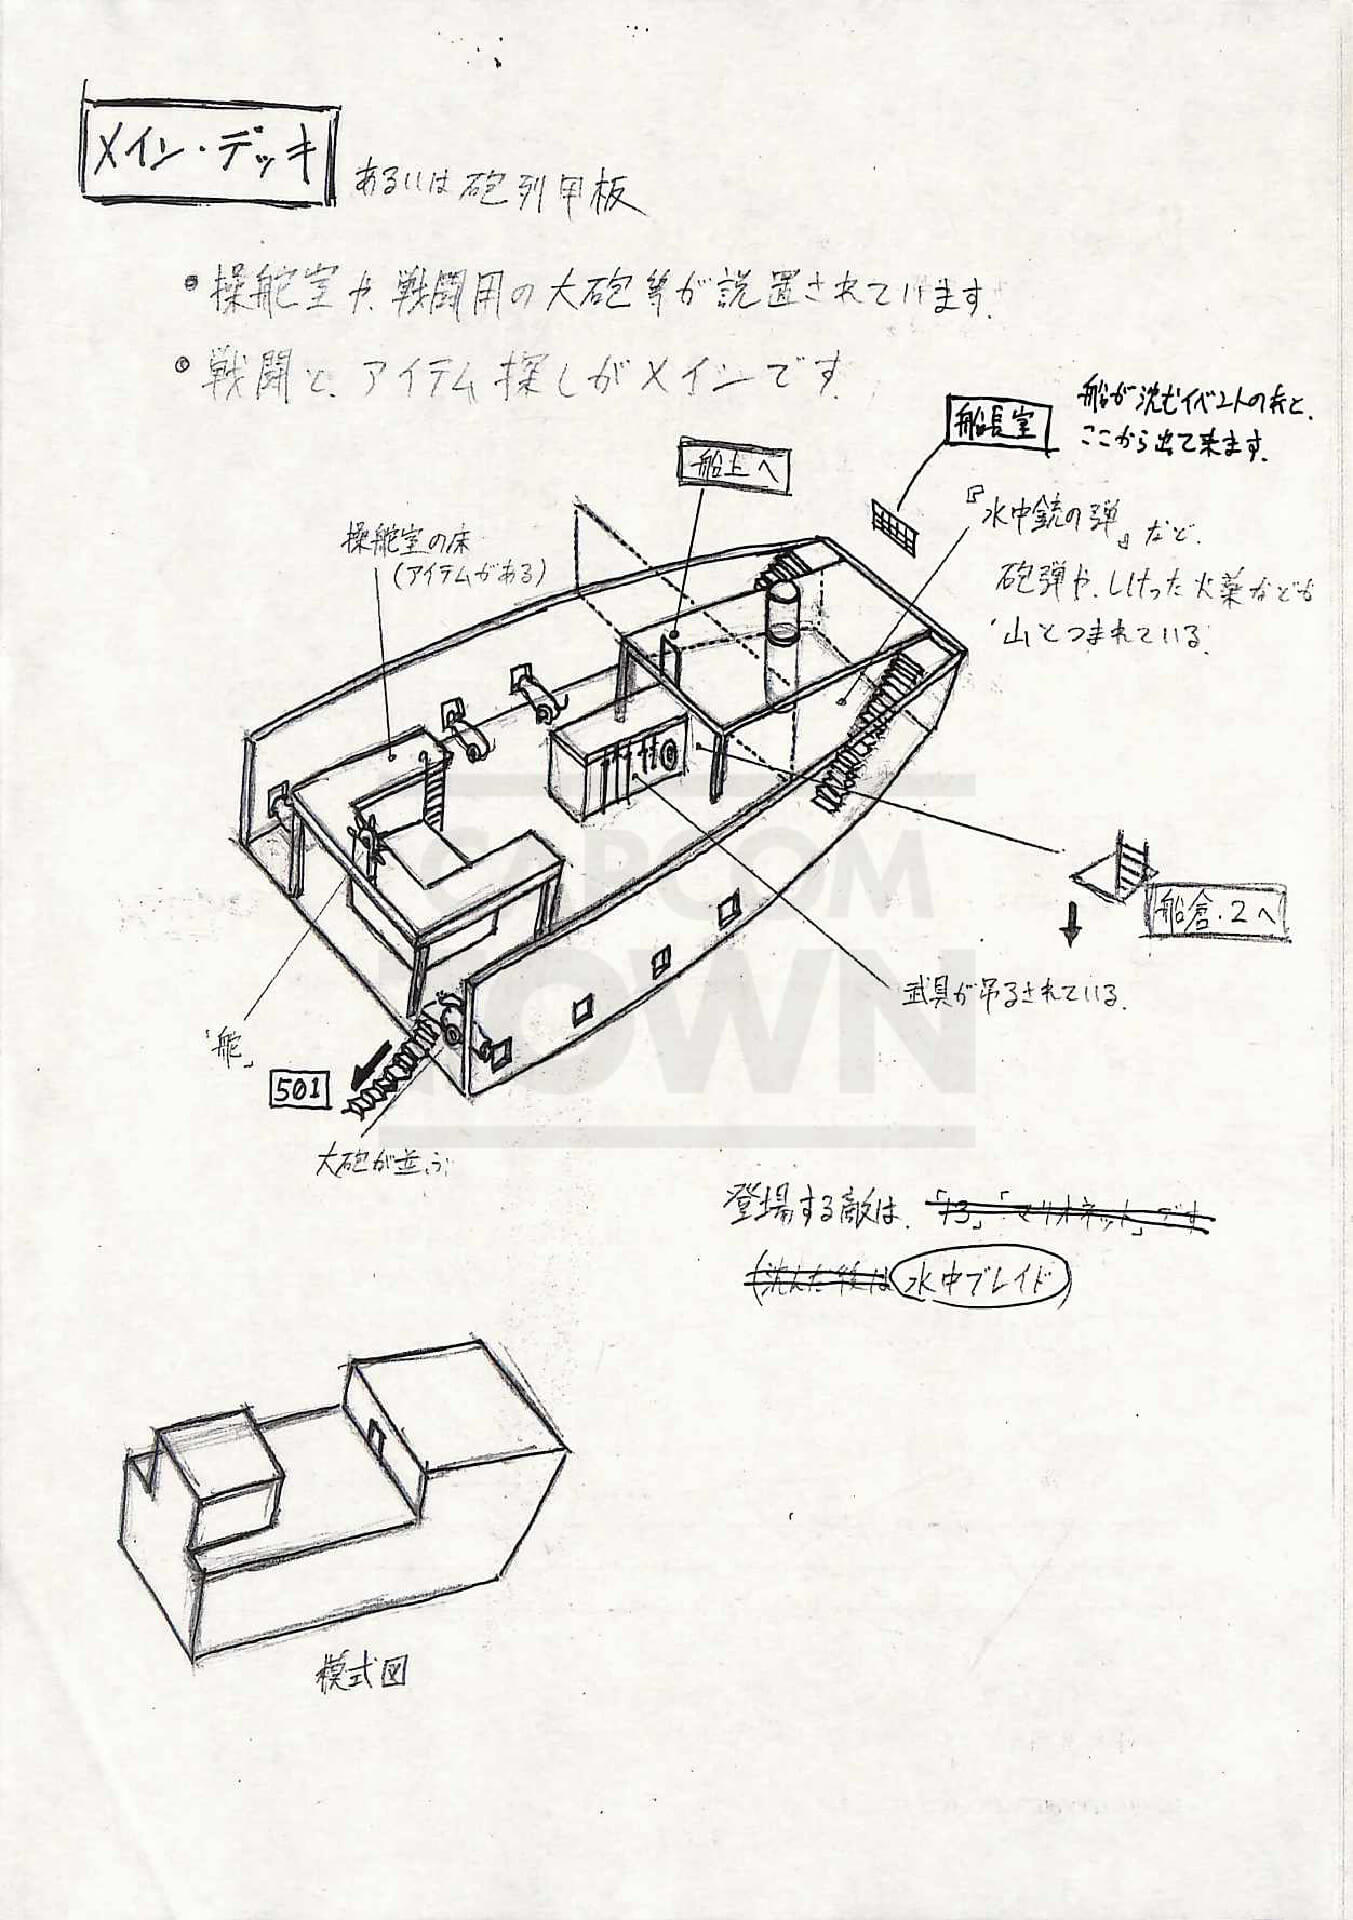 メイン・デッキ
あるいは砲列甲板
操舵室や、戦闘用の大砲等が設置されています。
戦闘と、アイテム探しがメインです。
船長室
船が沈むイベントの後と、
ここから出て来ます。
船上へ
操舵室の床
(アイテムがある)
『水中銃の弾』など、
砲弾や、しけった火薬なども
山とつまれている。
船倉・2へ
武具が吊るされている。
「舵」
501
大砲が並ぶ
CAPCOM
TOWN
登場する敵は、「43」「マリオネット」です
(沈んだ後は水中ブレイド)
模式図